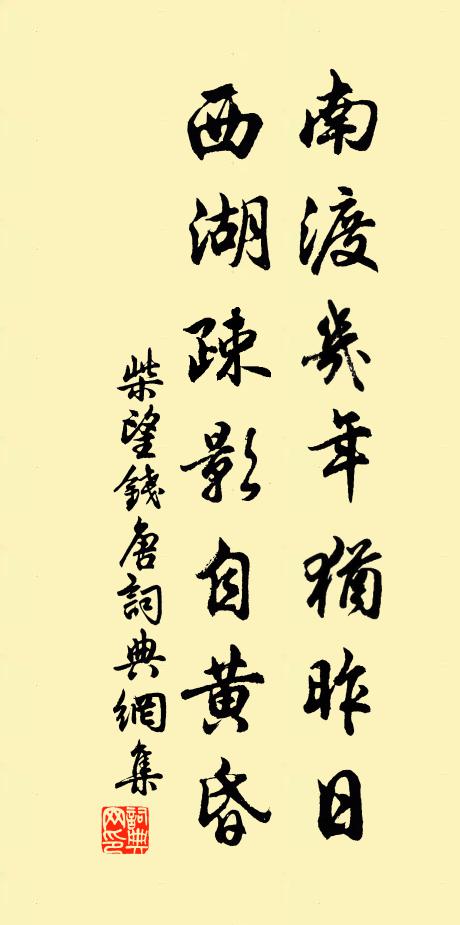 南渡幾年猶昨日
西湖疎影自黄昏
柴望錢唐詞典網集
詞典網印